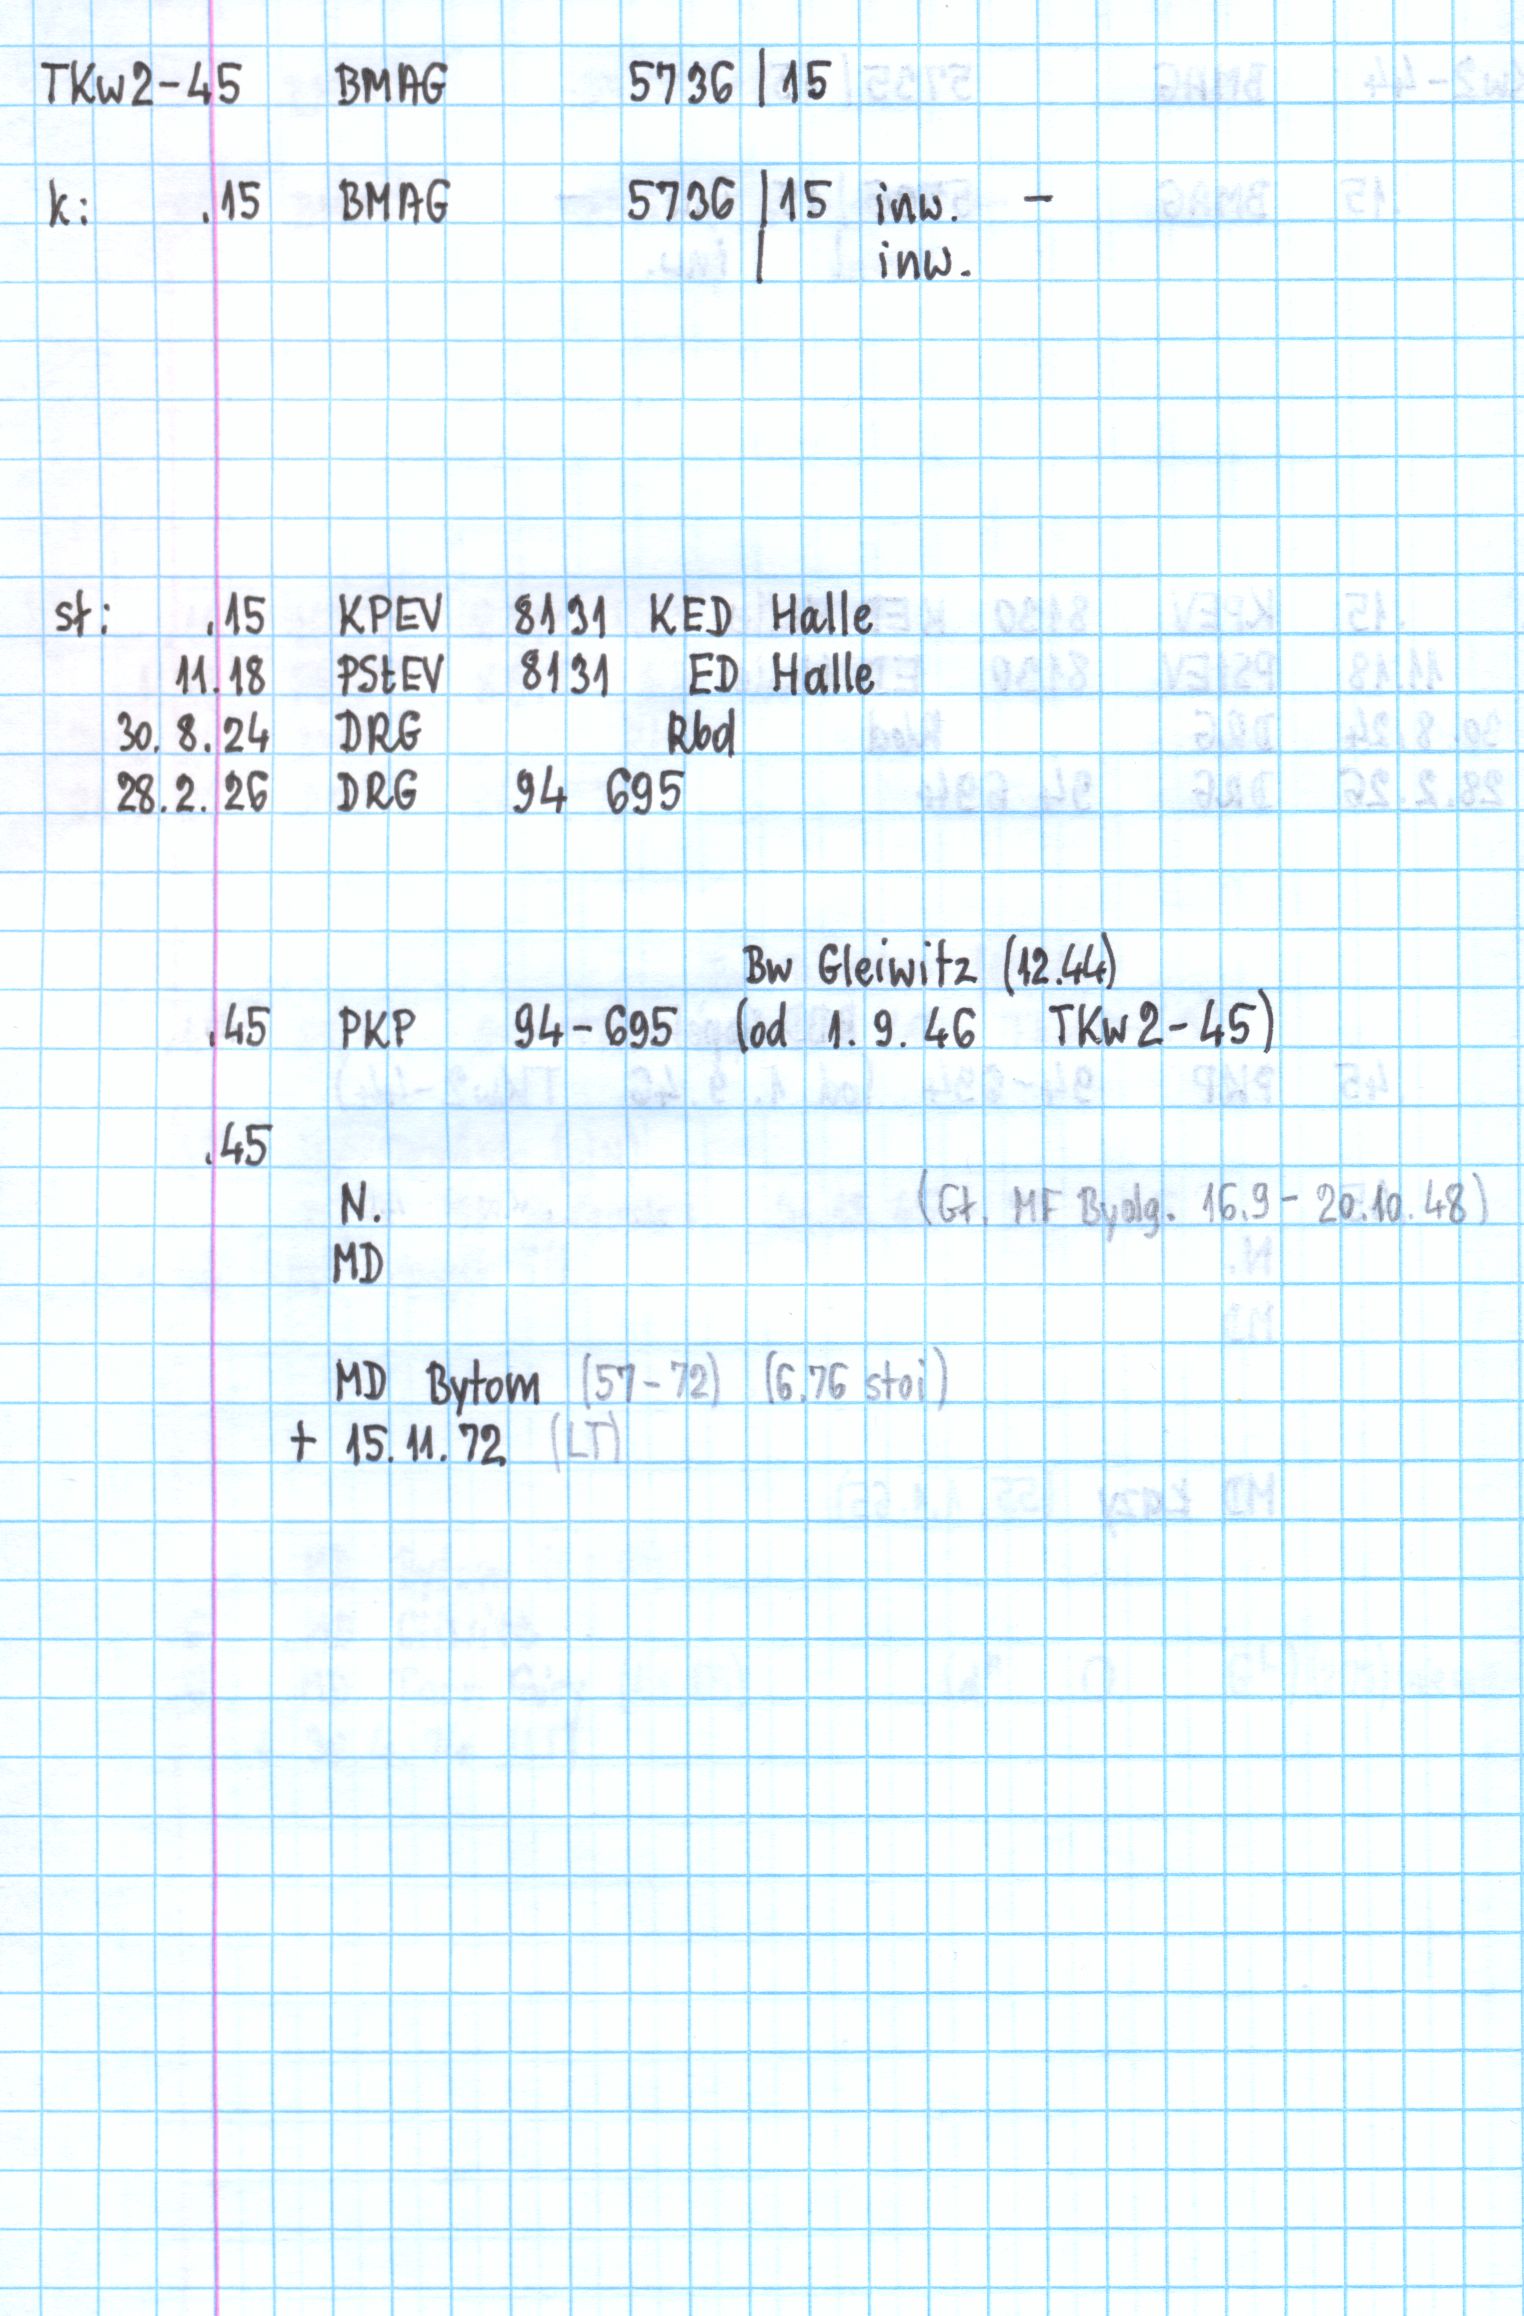 TKw2-45 BMAG 5736 | 15
k: .15 BMAG 5736 | 15 inw. -
| inw.
st: .15 KPEV 8131 KED Halle
11.18 PStEV 8131 ED Halle
30. 8. 24 DRG Rbd
28. 2. 26 DRG 94 695
Bw Gleiwitz (12.44)
.45 PKP 94-695 (od 1. 9. 46 TKw2-45)
.45
N. (Gt. MF Bydg. 16.9 - 20.10.48)
MD
MD Bytom (57-72) (6.76 stoi)
+ 15. 11. 72 (LT)